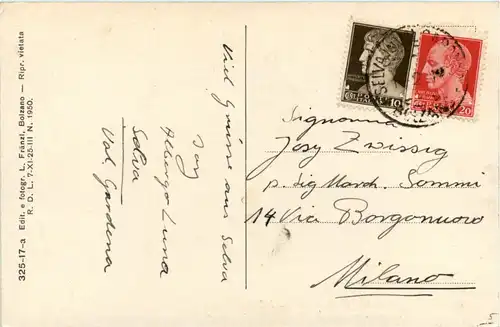 325-17-a Edit. e fotogr. L. Fränzl, Bolzano — Ripr. vietata
R. D. L. 7-XI-25-III N. 1950.
Viel Grüsse aus Selva
Josy
Albergo Luna
Selva
Val Gardena
10
20
SELVA
Signorina
Josy Zwissig
p. Sig March. Sommi
14 Via Borgonuovo
Milano
5